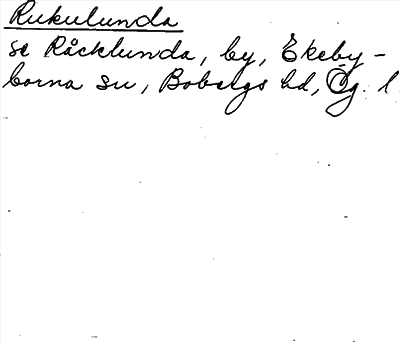 Rukulunda
se Råcklunda, by, Ekeby-
borna sn, Bobergs hd, Ög. l